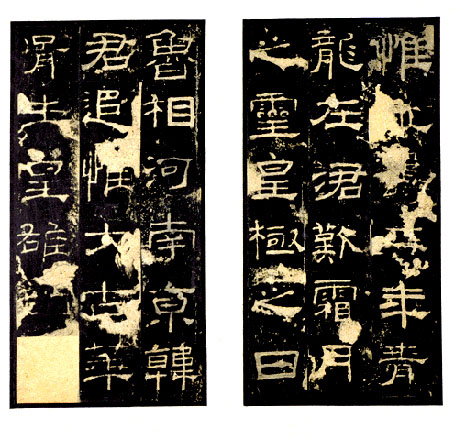 惟永壽二年青
龍在涒歎霜月
之靈皇極之日
魯相河南京韓
君追惟大古華
胥生皇雄